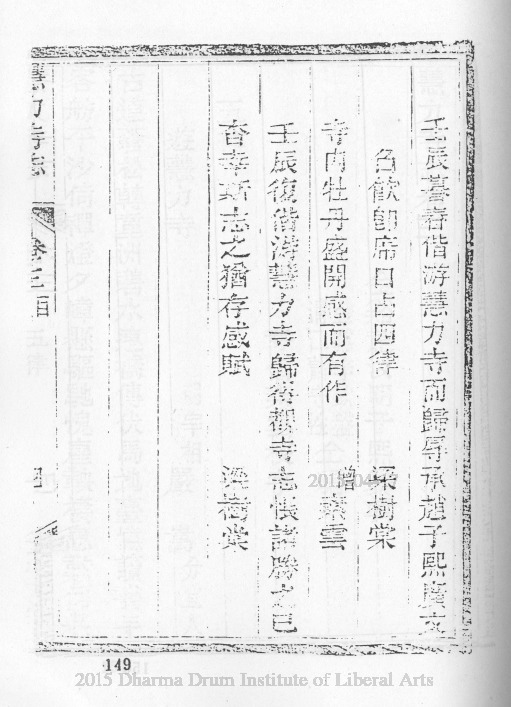 壬辰暮春偕游慧力寺而歸辱承趙子熙廣文
名飲即席口占四律 梁樹棠
寺內牡丹盛開感而有作 僧素雲
壬辰復偕游慧力寺歸得觀寺志悵諸勝之已
杳幸斯志之猶存感賦 梁樹棠
慧力寺志
卷之二目
149
2015 Dharma Drum Institute of Liberal Arts